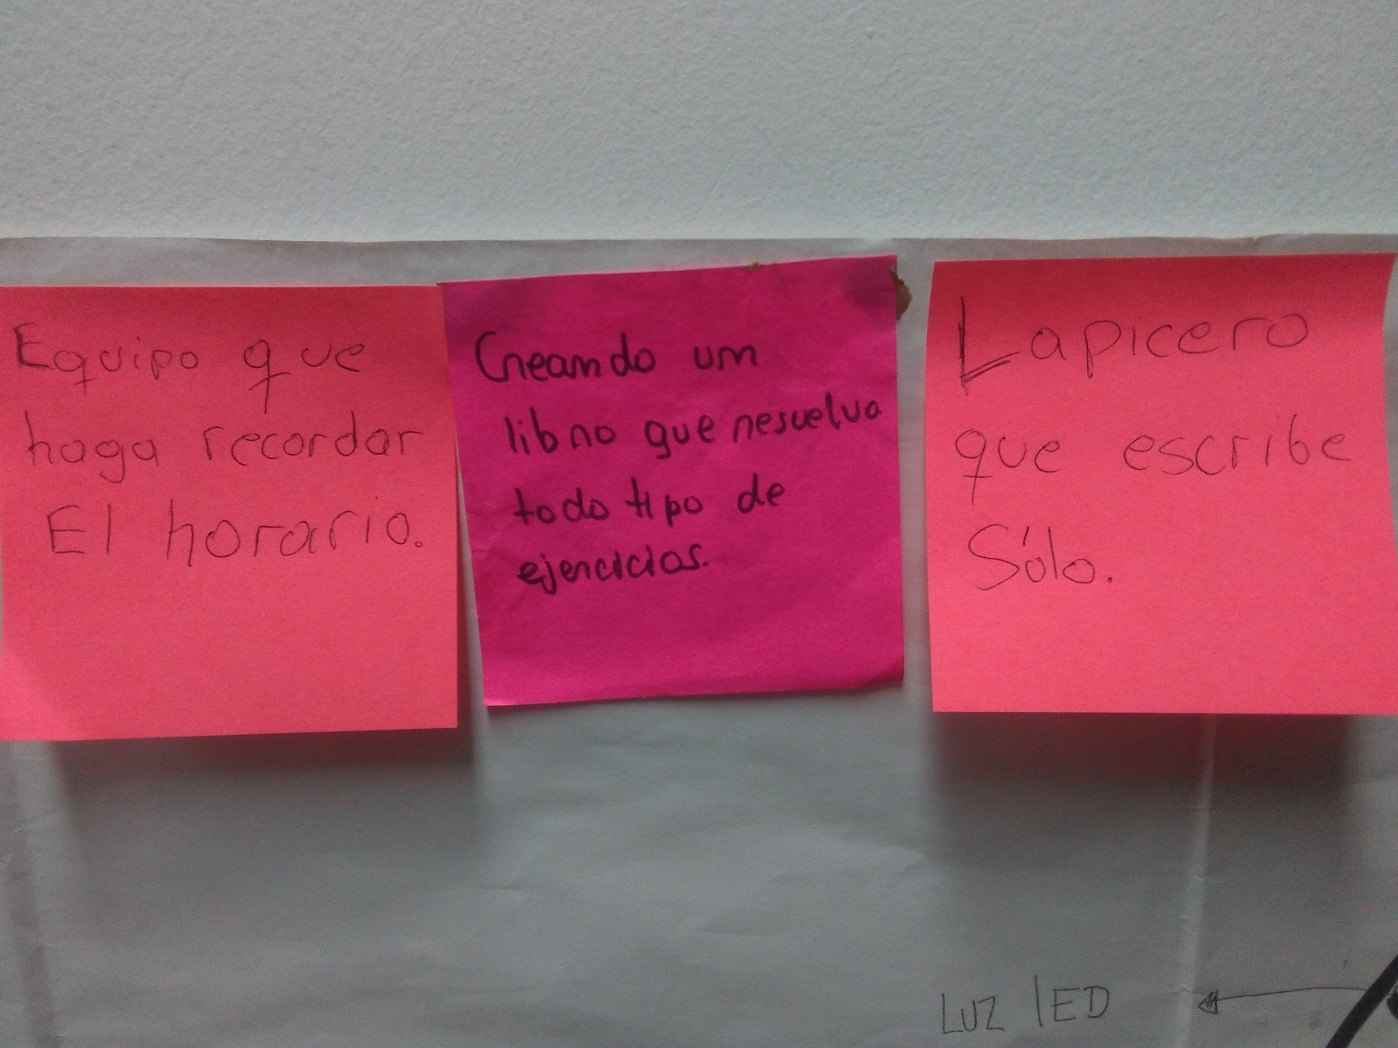 Equipo que
haga recordar
El horario.
Creando un
libro que resuelva
todo tipo de
ejercicios.
Lapicero
que escribe
Sólo.
LUZ lED